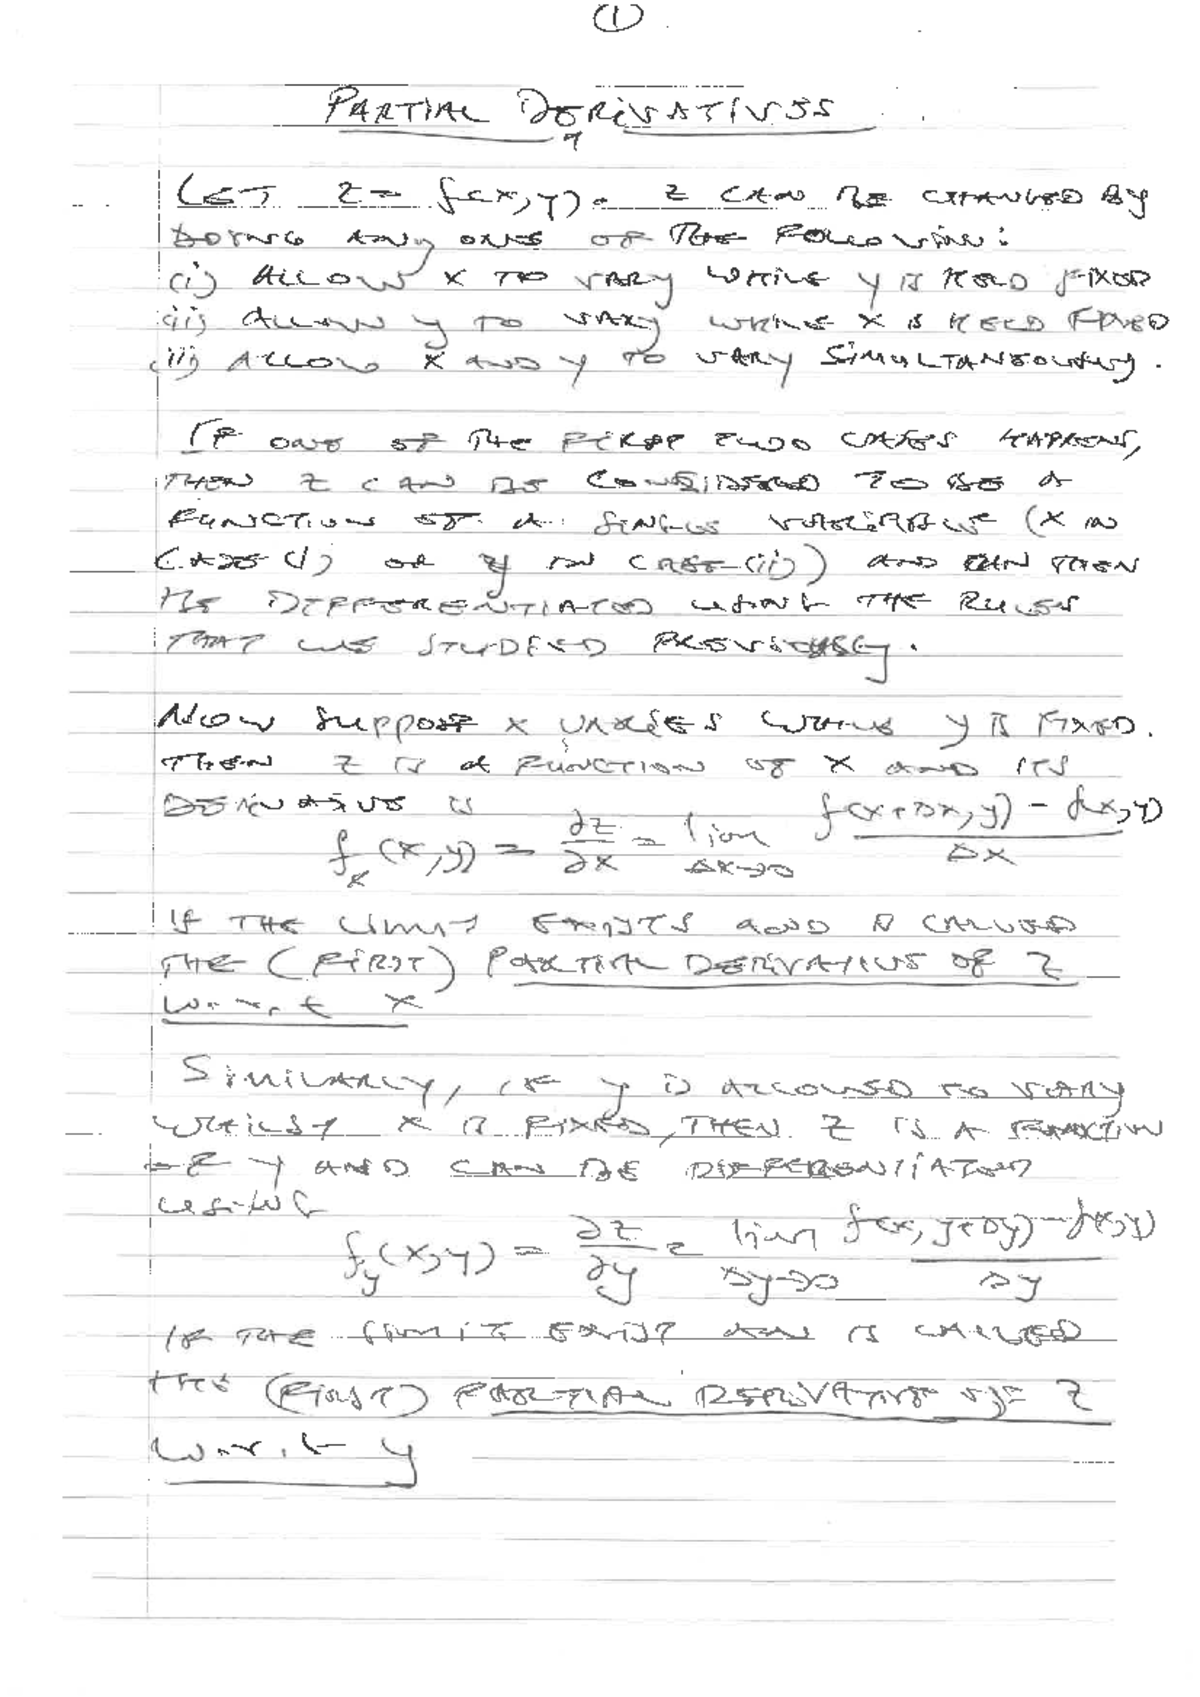 (1)
PARTIAL DERIVATIVES
LET Z = f(x,y). Z CAN BE CHANGED BY
DOING ANY ONES OF THE FOLLOWING:
(i) ALLOW X TO VARY WHILE y IS HELD FIXED
(ii) ALLOW y TO VARY WHILE X IS HELD FIXED
(iii) ALLOW X AND y TO VARY SIMULTANEOUSLY.
IF ONE OF THE FIRST TWO CASES HAPPENS,
THEN Z CAN BE CONSIDERED TO BE A
FUNCTION OF A SINGLE VARIABLE (X IN
CASE (i) OR y IN CASE (ii)) AND CAN THEN
BE DIFFERENTIATED USING THE RULES
THAT WE STUDIED PREVIOUSLY.
NOW SUPPOSE X VARIES WHILE y IS FIXED.
THEN Z IS A FUNCTION OF X AND ITS
DERIVATIVE IS
f_x(x,y) = ∂z/∂x = lim Δx→0 (f(x+Δx,y) - f(x,y))/Δx
IF THE LIMIT EXISTS AND IS CALLED
THE (FIRST) PARTIAL DERIVATIVE OF Z
w.r.t X
SIMILARLY, IF y IS ALLOWED TO VARY
WHILST X IS FIXED, THEN Z IS A FUNCTION
OF y AND CAN BE DIFFERENTIATED
USING
f_y(x,y) = ∂z/∂y = lim Δy→0 (f(x,y+Δy) - f(x,y))/Δy
IF THE LIMIT EXIST AN IS CALLED
THE (FIRST) PARTIAL DERIVATIVE OF Z
w.r.t y